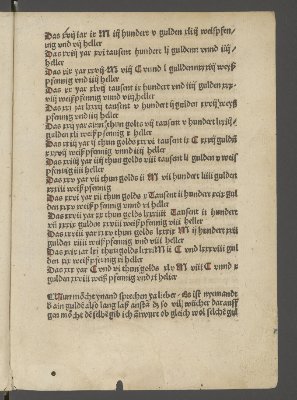 Das xvij iar ix M iij hundert v gulden xlij weißpfen-
nig vnd vij heller
Das xviij yar xvi tausent hundert lj guldenn vnnd iiij
heller
Das xix yar xxvij M viij C vnnd l guldenn xxxiij weyß
pfennig vnd iiij heller
Das xx yar xlvij tausent ix hundert vnd iiij gulden xxx-
viij weißpfennig vnnd viij heller
Das xxi yar lxxxj tausent v hundert ij gulden xxvij weyß
pfennig vnnd iiij heller
Das xxij yar thun golts vij tausent v hundert lxxij
gulden xli weißpfennig x heller
Das xxiij yar ij thun golds xxxvi tausent ix C xxxij guldñ
x xvij weißpfennig vnnd iiij heller
Das xxiiij yar iiij thun golds xiii tausent li gulden v weiß
pfennig iiii heller
Das xxv yar vii thun golds ii M vii hundert liiii gulden
xxxiii weißpfennig
Das xxvi yar xii thun golds v Tausent ii hundert xcix gul
den xxxv weißpfennig vnnd vi heller
Das xxvii yar xx thun golds lxxiiii Tausent ii hundert
vii gulden xxxiii weißpfennig viii heller
Das xxviii yar xxxv thun golds lxxix M ij hundert xiii
gulden xiiii weißpfennig vnd vii heller
Das xxix iar lxi thun golds lxxiii M ii C vnd lxxxviii gul
den xx weißpfennig xi heller
Das xxx yar C vnnd vi thun golds xlv M viii C vnnd x
gulden xxvii weiß pfennig vnd xi heller
Nun möcht ymand sprechen ya lieber Es ist nyemandt
d ain guldē also lang laß anstā dz so vil wücher darauff
gen möcht dē selbē gib ich antwurt ob gleich wol solchē gul